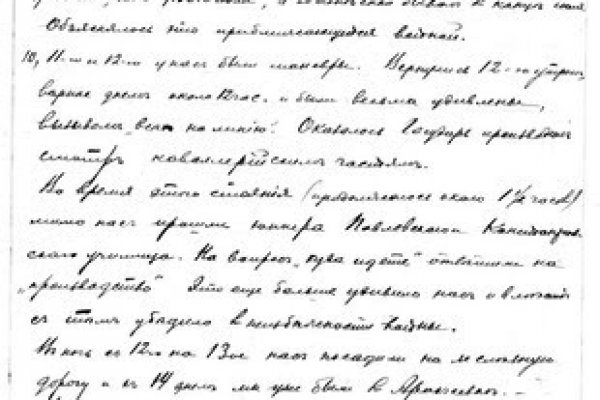 Объяснялось это приближающейся войной.
10, 11-го и 12-го у нас были маневры. Вернулись 12-го утром,
вернее днем около 12 час. и были весьма удивлены,
вызовом "всех на линию". Оказалось Государь производил
смотр кавалерийским частям.
Во время этого стояния (продолжалось около 1½ часов)
мимо нас прошли юнкера Павловского
ского училища. На вопрос "куда идете" отвечали на
"производство" Это еще больше удивило нас и
с тем убедило в неизбежности войны.
В ночь с 12-го на 13-ое нас посадили на железную
дорогу и 14 днем мы уже были в